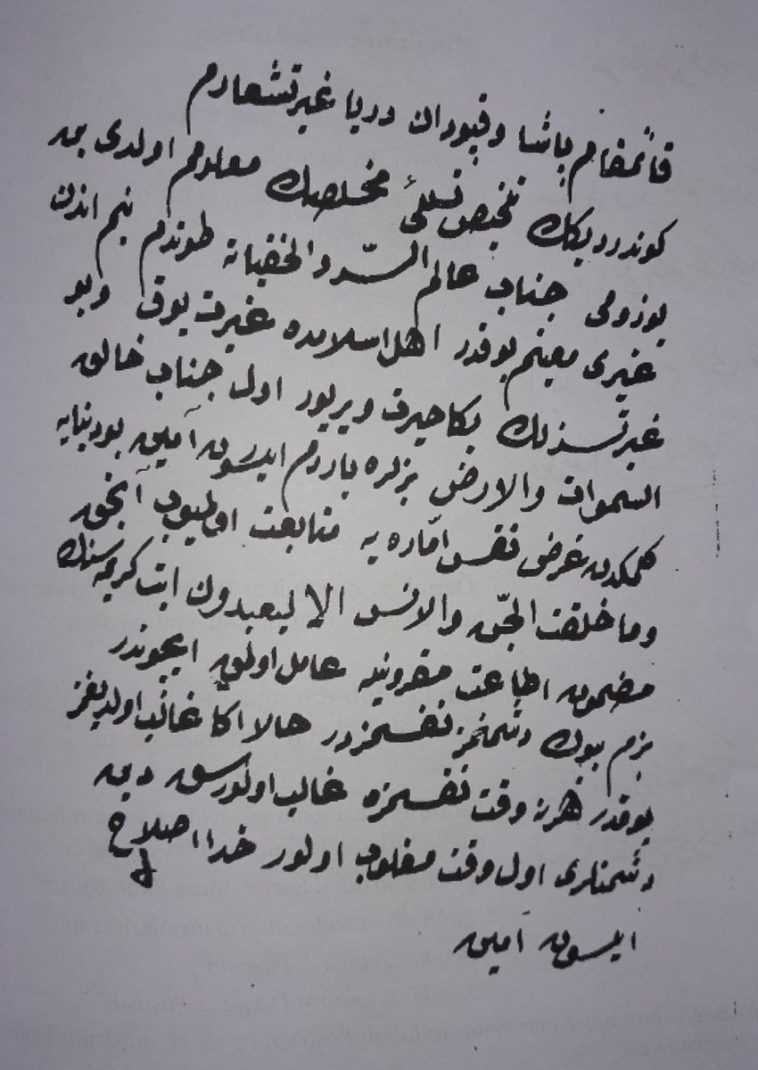 قائمقام پاشا و قپودان دریا غیرتشعارم
كوندردیكك تلخیص تسللئ مخلصك معلومم اولدی بن
یوزومی جناب عالم السّر والخفیاته طوتدم بنم اندن
غیری معینم یوقدر اهل اسلامده غیرت یوق وبو
غیرتسزلك بكا حیرت ویریور اول جناب خالق
السموات والارض بزلره یاردم ایدرسون آمین بو دنیایه
كلمكدن غرض نفس امّاره یه متابعت اولمیوب آنجق
وما خلقت الجّن والانس الا لیعبدون ایت كریمه سنك
مضمون اطاعت مقرونیله عامل اولمق ایچوندر
بزم بیوك دشمنمز نفسمزدر حالا اكا غالب اولدیغمز
یوقدر هرنه وقت نفسمزه غالب اولورسق دین
دشمنلری اول وقت مغلوب اولور خدا اصلاح
ایلسون آمین